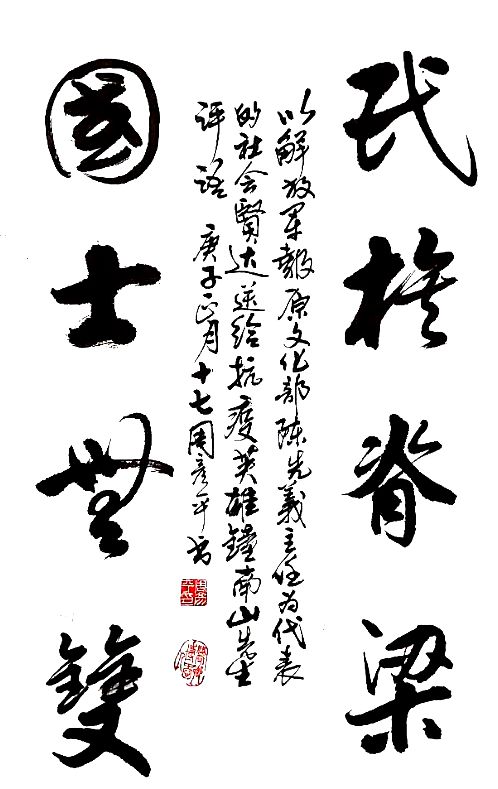 民族脊梁
以解放军報原文化部陈先義主任为代表
的社会賢达送给抗疫英雄鐘南山先生
评语 庚子正月十七周彦平书
國士無雙